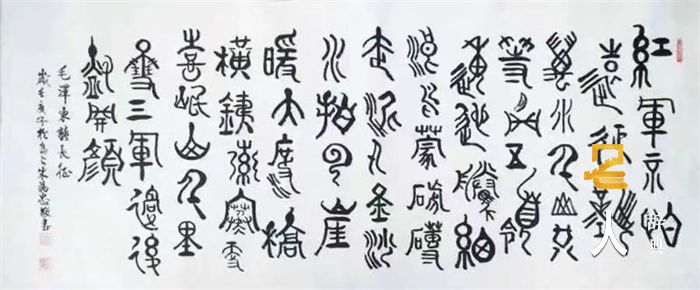 紅軍不怕
遠征難
萬水千山只
等閒五嶺
逶迤騰細
浪烏蒙磅礴
走泥丸金沙
水拍雲崖
暖大渡橋
橫鐵索寒更
喜岷山千里
雪三軍過後
盡開顏
毛澤東 長征
歲 敬書
名人